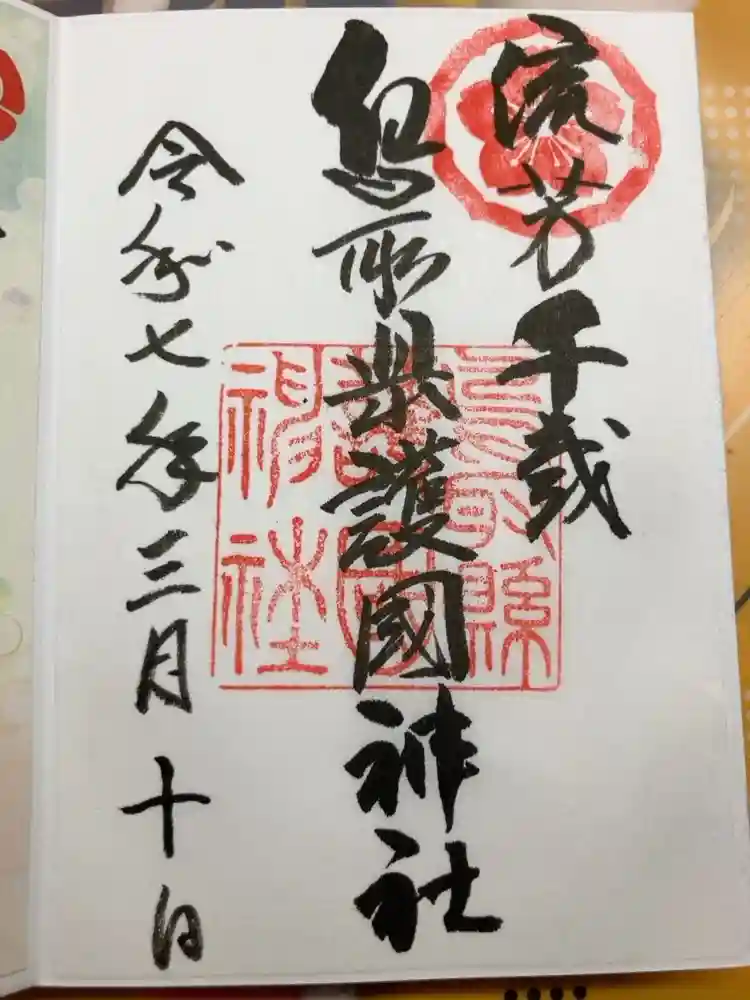 流芳千載
鳥取県護國神社
鳥取縣
護國
神社
令和七年三月十日